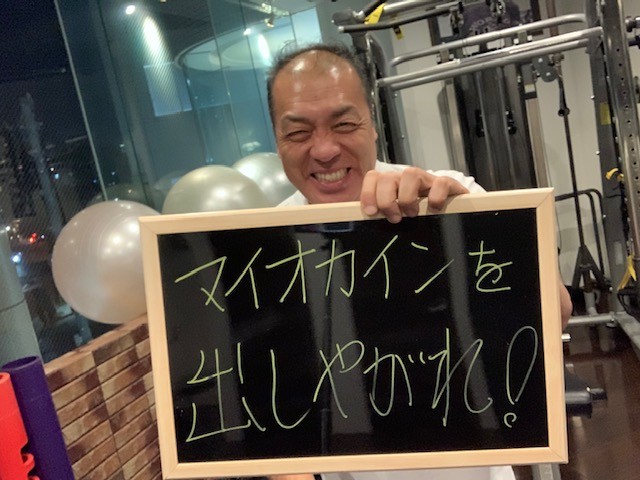 マイオカインを
出しやがれ!